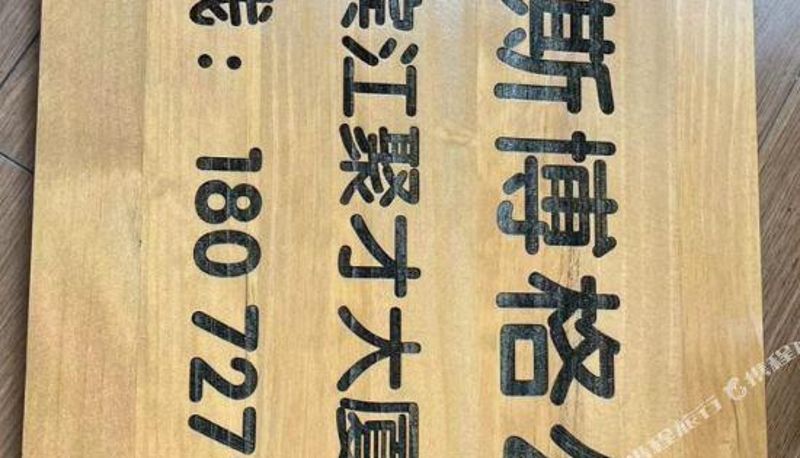 斯博格公
滨江聚才大厦
线：180 727
携程旅行